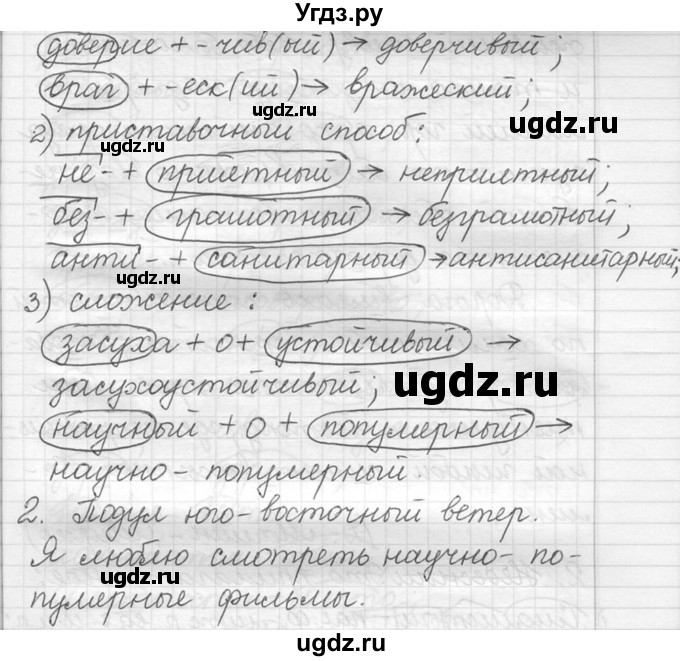 Угдз.ру
доверие + -чив(ый) → доверчивый;
враг + -еск(ий) → вражеский;
ugdz.ru ugdz.ru
2) приставочный способ:
ugdz.ru
не- + приятный → неприятный;
без- + грамотный → безграмотный;
ugdz.ru
анти- + санитарный → антисанитарный;
ugdz.ru
3) сложение:
засуха + о + устойчивый →
ugdz.ru
засухоустойчивый;
ugdz.ru
научный + о + популярный →
научно-популярный.
2. Подул юго-восточный ветер.
ugdz.ru
Я люблю смотреть научно-по-
ugdz.ru
пулярные фильмы.
ugdz.ru